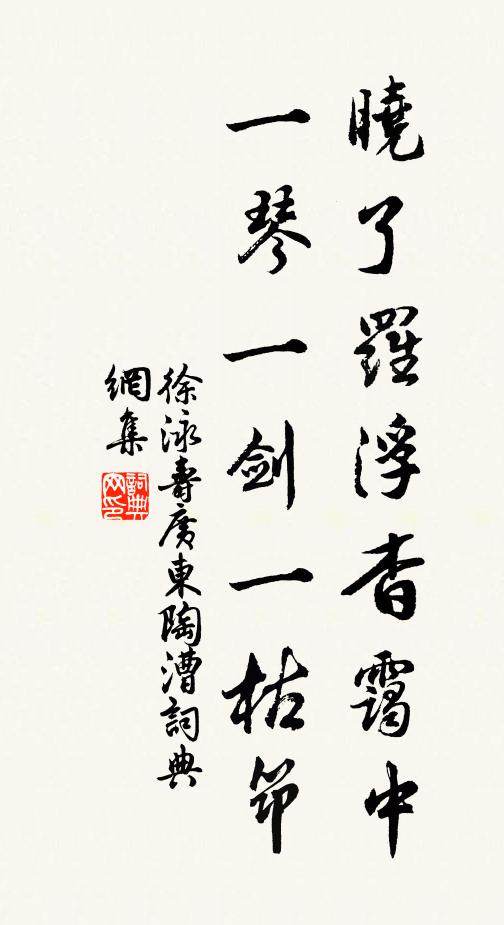 曉了羅浮杳靄中
一琴一劍一枯笻
徐泳壽廣東陶漕詞典
網集
詞典
网印